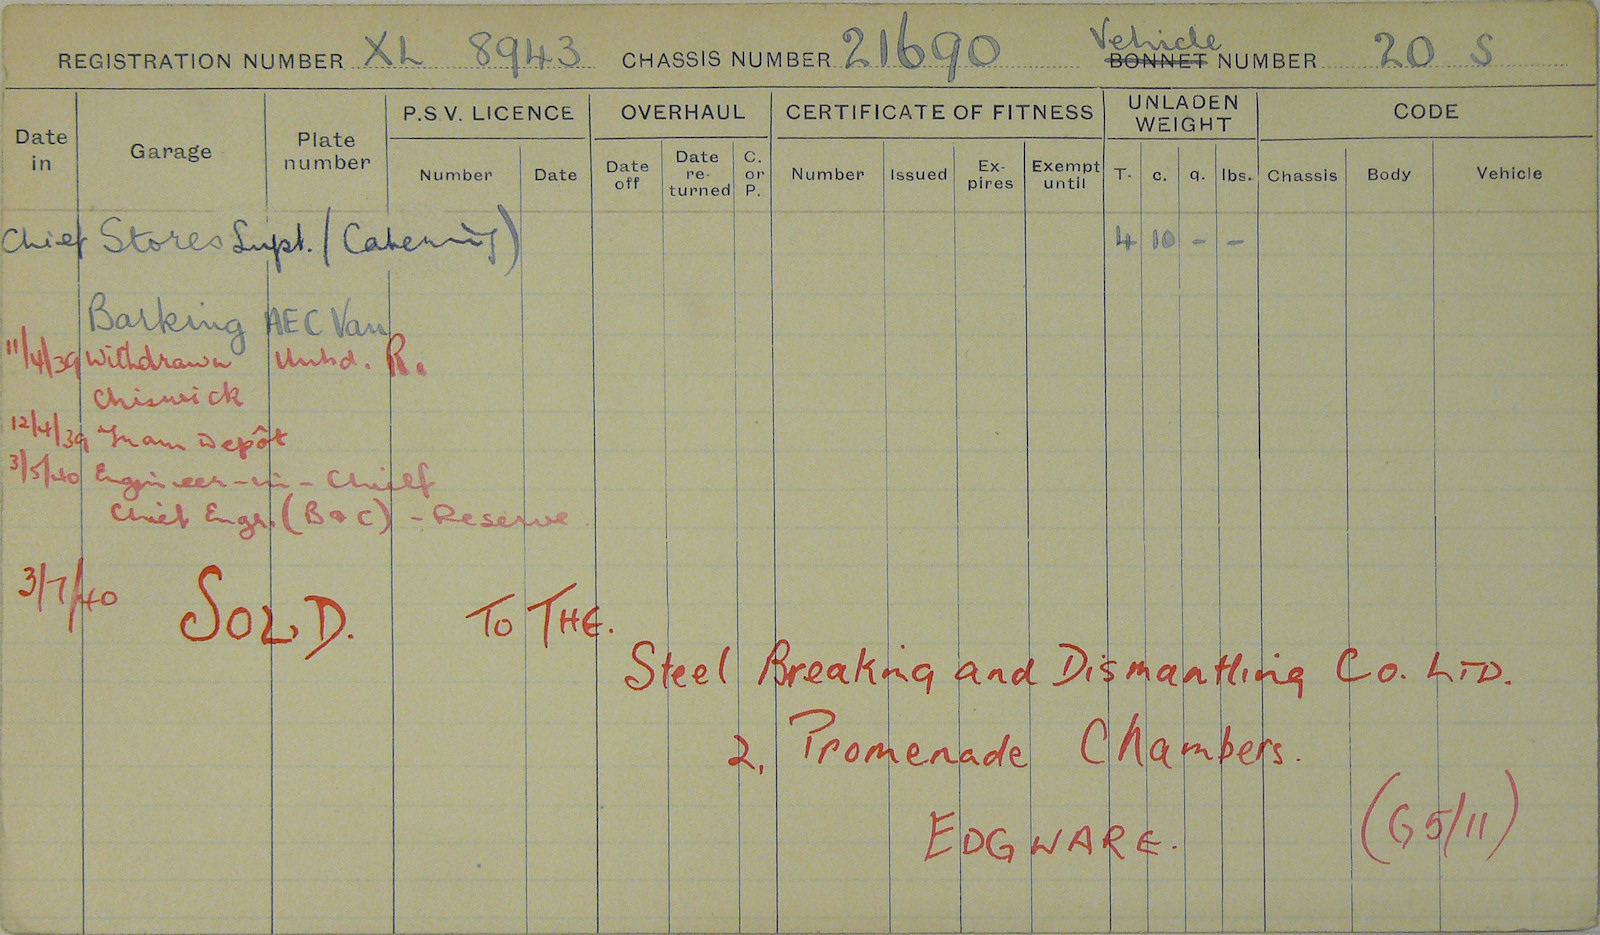 REGISTRATION NUMBER XL 8943 CHASSIS NUMBER 21690 Vehicle BONNET NUMBER 20 S
Date in Garage Plate number P.S.V. LICENCE OVERHAUL CERTIFICATE OF FITNESS UNLADEN WEIGHT CODE
Number Date Date off Date re-turned C. or P. Number Issued Ex-pires Exempt until T. c. q. lbs. Chassis Body Vehicle
Chief Stores Supt. (Catering) 4 10 - -
Barking AEC Van
11/4/39 Withdrawn Unhd. R.
Chiswick
12/4/39 Tram Depôt
3/5/40 Engineer-in-Chief
Chief Engr. (B & C) - Reserve
3/7/40 SOLD. TO THE.
Steel Breaking and Dismantling Co. LTD.
2, Promenade Chambers.
EDGWARE. (G5/11)